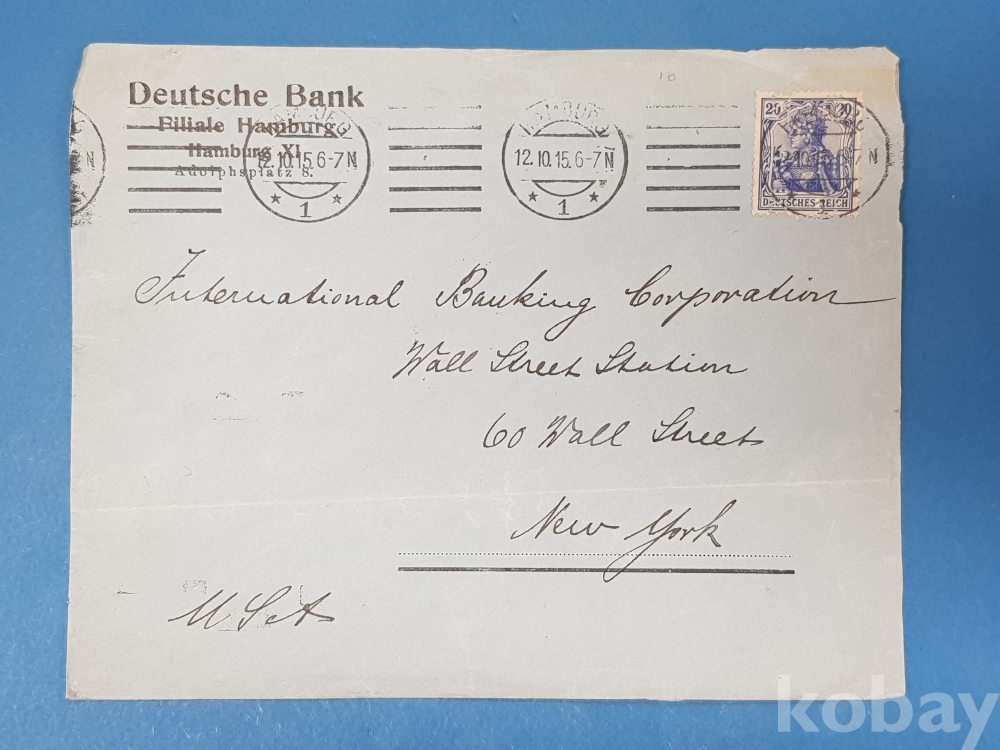 10
Deutsche Bank
Filiale Hamburg
Hamburg XI
Adolphsplatz 8.
HAMBURG
12.10.15.6-7N
* 1 *
HAMBURG
12.10.15.6-7N
* 1 *
20 20
DEUTSCHES REICH
12.10.15.6-7N
1
N
International Banking Corporation
Wall Street Station
60 Wall Street
New York
USA
kobay